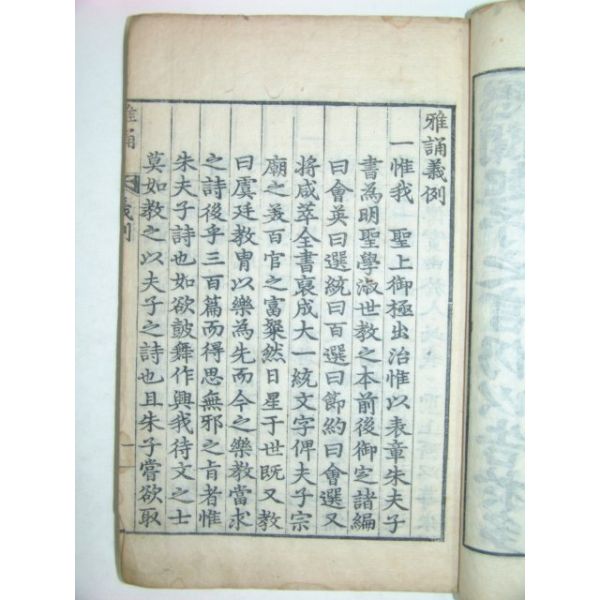 雅誦義例
一惟我 聖上御極出治惟以表章朱夫子
書為明聖學淑世教之本前後御定諸編
曰會英曰選統曰百選曰節約曰會選又
將咸萃全書裒成大一統文字俾夫子宗
廟之美百官之富粲然日星于世既又教
曰虞廷教冑以樂為先而今之樂教當求
之詩後乎三百篇而得思無邪之旨者惟
朱夫子詩也如欲鼓舞作興我待文之士
莫如教之以夫子之詩也且朱子嘗欲取
雅誦 義例 一